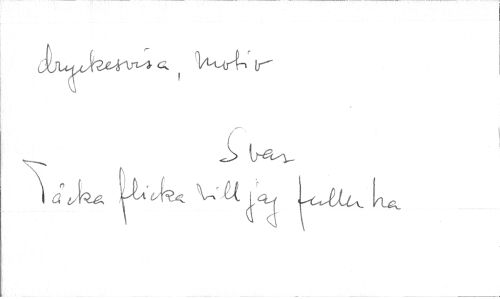 dryckesvisa, motiv
Svar
Täcka flicka vill jag fuller ha